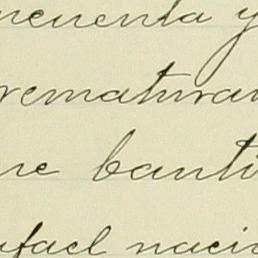 ncuenta y
rematura
ne bauti
afael naci